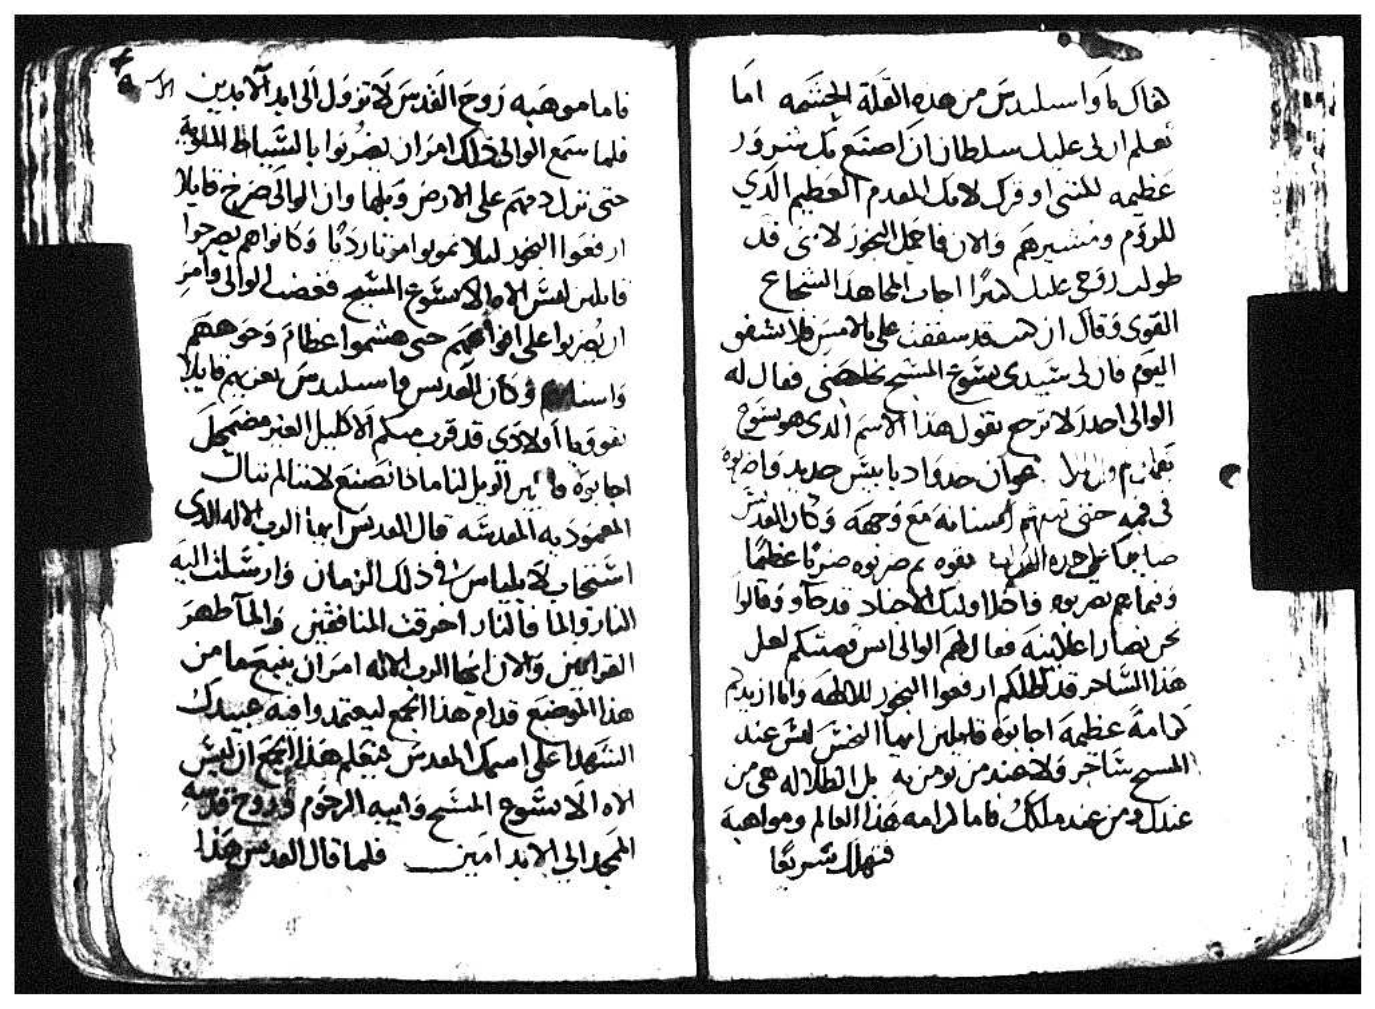 فقال يا واسيليدس من هذه القلة الحشمه اما
تعلم ان لى عليك سلطان ان اصنع بك شرور
عظيمه للنى اوقرك لاجل المقدم العظيم الذي
للروم ومشيرهم والان فاحمل البخور لانى قد
طولت روحى عليك كثيرًا اجاب المجاهد الشجاع
القوى وقال ان كنت قد سفقت على بالامس فلا تشفق
اليوم فان لى سيدى يسوع المسيح يخلصنى فقال له
الوالى احدر لا ترجع تقول هذا الاسم الدى هو يسوع
حدوا دبابيس حديد واضربوه
فى فمه حتى اسنانه مع وجهه وكان القديس
صابرًا على هده بقوه ثم ضربوه ضربًا عظيمًا
وفيما هم يضربوه فادا اوليك الاجناد قد جآو وقالوا
نحن نصارا علانيه فقال لهم الوالى ايس قصتكم لعل
هذا الساحر قد اضللكم ارفعوا البخور للالهه وانا ازيدكم
كرامةً عظيمة اجابوه قايلين ايها النجس ليس عند
المسيح ساحر ولا عند من يومن به بل الظلاله هى من
عندك ومن عند ملكك فاما كرامه هذا العالم ومواهبه
فتهلك سريعًا
فاما موهبه روح القدس لا تزول الى ابد الابدين
فلما سمع الوالى ذلك امر ان يضربوا بالسياط الملويه
حتى نزل دمهم على الارض وبلها وان الوالى صرخ قايلا
ارفعوا البخور ليلا تموتوا موتا رديًا وكانوا هم يصرخوا
قايلين ليس الاه الا يسوع المسيح فغضب الوالى وامر
ان يضربوا على افواههم حتى هشموا عظام وجوههم
واسنانهم وكان القديس واسيليدس يعزيهم قايلا
تقووا يا اولادي قد قرب منكم الاكليل الغير مضمحل
اجابوه الويل لنا ماذا نصنع لاننا لم ننال
المعموديه المقدسه قال القديس ايها الرب الاله الدى
استجاب لايلياس فى ذلك الزمان وارسلت اليه
النار والما فالنار احرقت المنافقين والمآ طهر
القرابين والان ايها الرب الاله امر ان ينبع ما من
هذا الموضع قدام هذا الجمع ليعتمدوا فيه عبيدك
الشهدا على اسمك المقدس فيعلم هذا الجمع ان ليس
الاه الا يسوع المسيح وابيه الرحوم وروح قدسه
الممجد الى الابد امين فلما قال القديس هذا